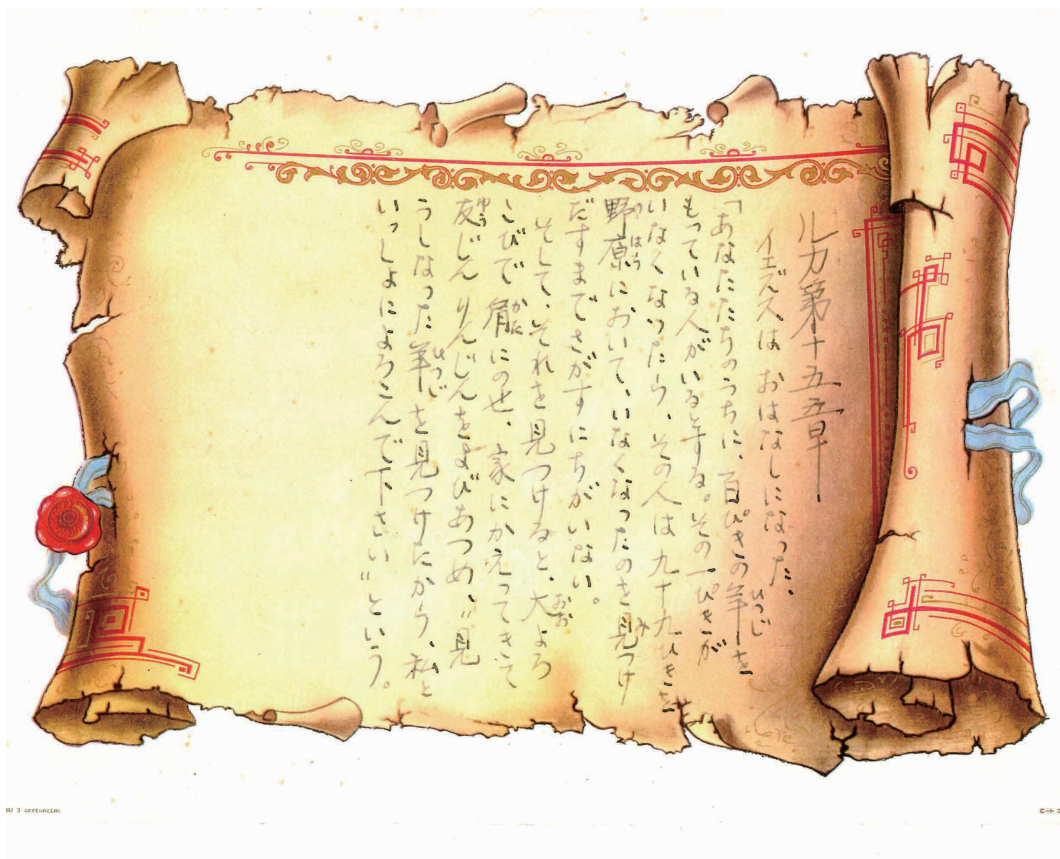 ルカ第十五章
イエズスは おはなしになった、
「あなたたちのうちに、百ぴきの羊を
もっている人がいるとする。その一ぴきが
いなくなったら、その人は九十九ひきを
野原において、いなくなったのを見つけ
だすまでさがすにちがいない。
そして、それを見つけると、大よろ
こびで肩にのせ、家にかえってきて
友じん りんじんをよびあつめ、〝見
うしなった羊を見つけたから、私と
いっしょによろこんで下さい〟という。